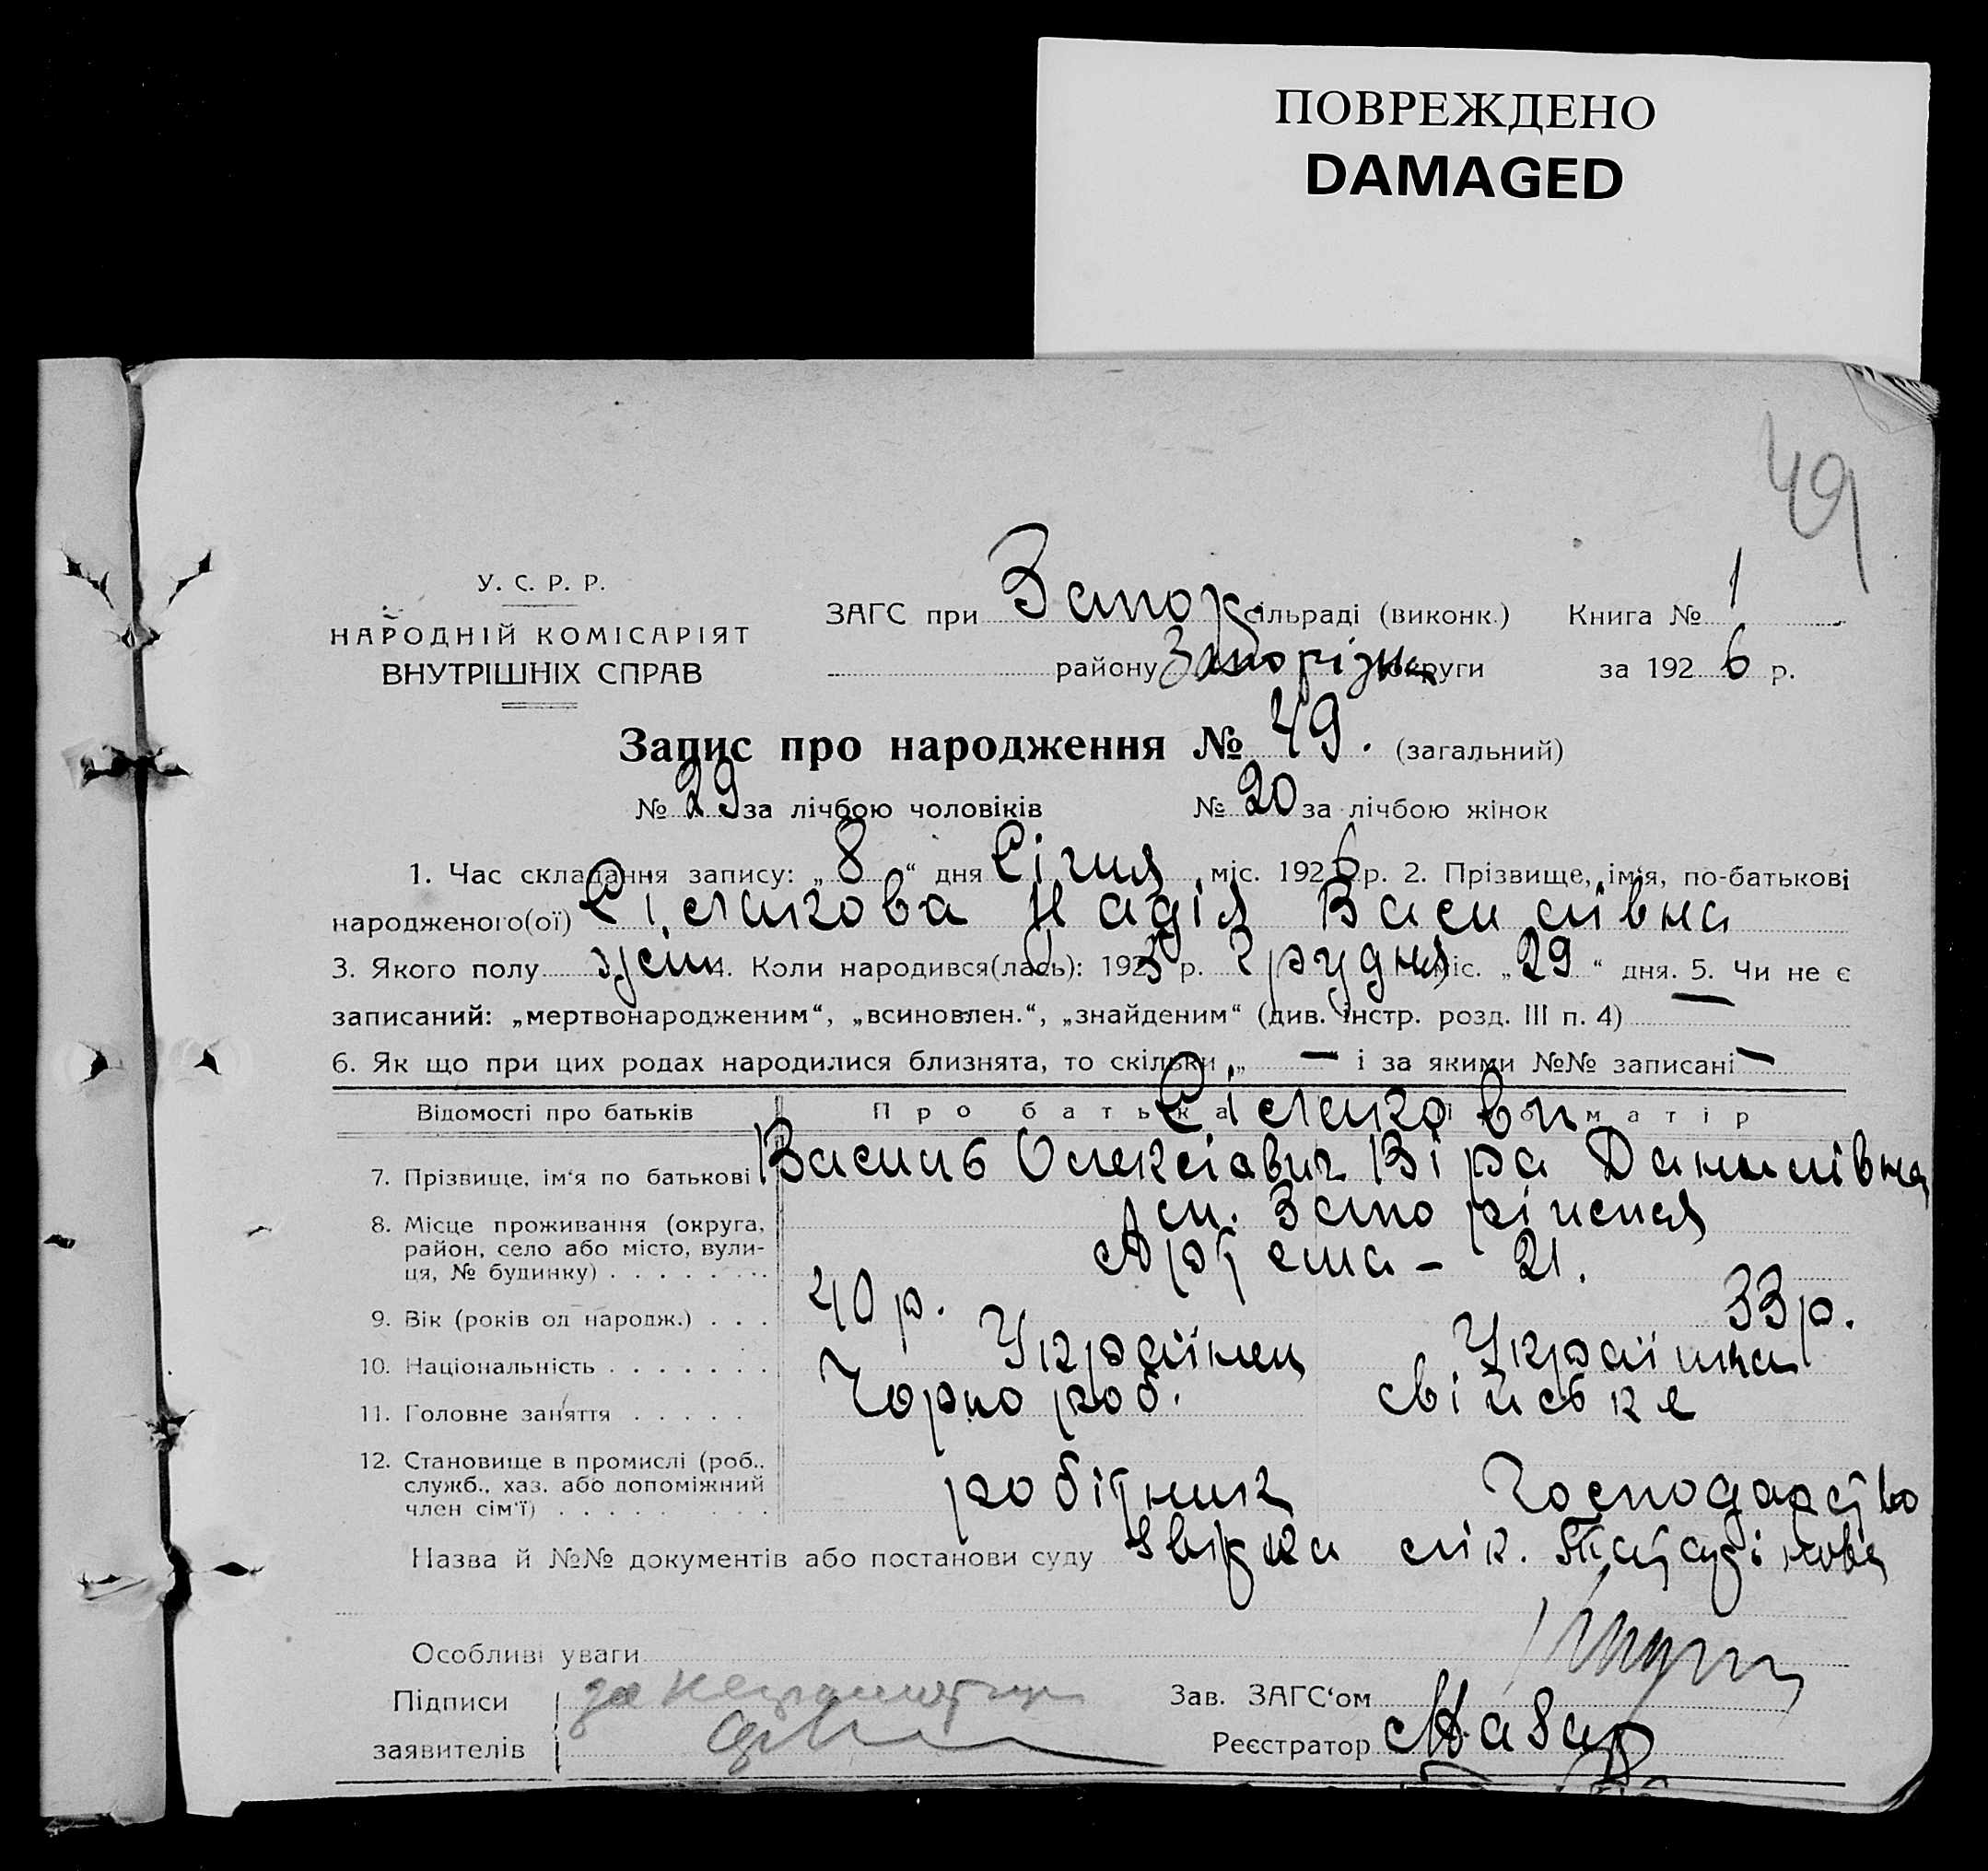 ПОВРЕЖДЕНО
DAMAGED
49
У. С. Р. Р.
НАРОДНІЙ КОМІСАРІЯТ
ВНУТРІШНІХ СПРАВ
ЗАГС при Запор. сільраді (виконк.) Книга № 1
району Запорізьк округи за 1926 р.
Запис про народження № 49. (загальний)
№ 29 за лічбою чоловіків № 20 за лічбою жінок
1. Час складання запису: „8“ дня Січня міс. 1926 р. 2. Прізвище, ім'я, по-батькові
народженого(ої) Надія Василівна
3. Якого полу 4. Коли народився(лась): 1925 р. Грудня міс. „29“ дня. 5. Чи не є
записаний: „мертвонародженим“, „всиновлен.“, „знайденим“ (див. інстр. розд. III п. 4) —
6. Як що при цих родах народилися близнята, то скільки „ — “ і за якими №№ записані —
Відомості про батьків Про батька і матір
7. Прізвище, ім'я по батькові Василь Олексієвич Віра Данилівна
8. Місце проживання (округа, район, село або місто, вулиця, № будинку) м. Запоріжжя
Артема - 21.
9. Вік (років од народж.) 40 р. 33 р.
10. Національність Українец Українка
11. Головне заняття Чорнороб. свійське
12. Становище в промислі (роб., служб., хаз. або допоміжний член сім'ї) робітник господарство
Назва й №№ документів або постанови суду
Особливі уваги
Підписи за неграмотную
заявителів
Зав. ЗАГС'ом
Реєстратор